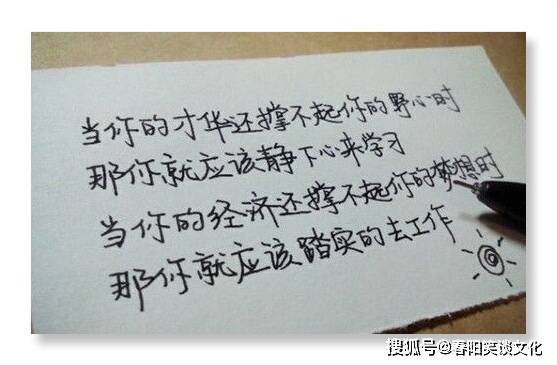 当你的才华还撑不起你的野心时
那你就应该静下心来学习
当你的经济还撑不起你的梦想时
那你就应该踏实的去工作
搜狐号@春阳笑谈文化